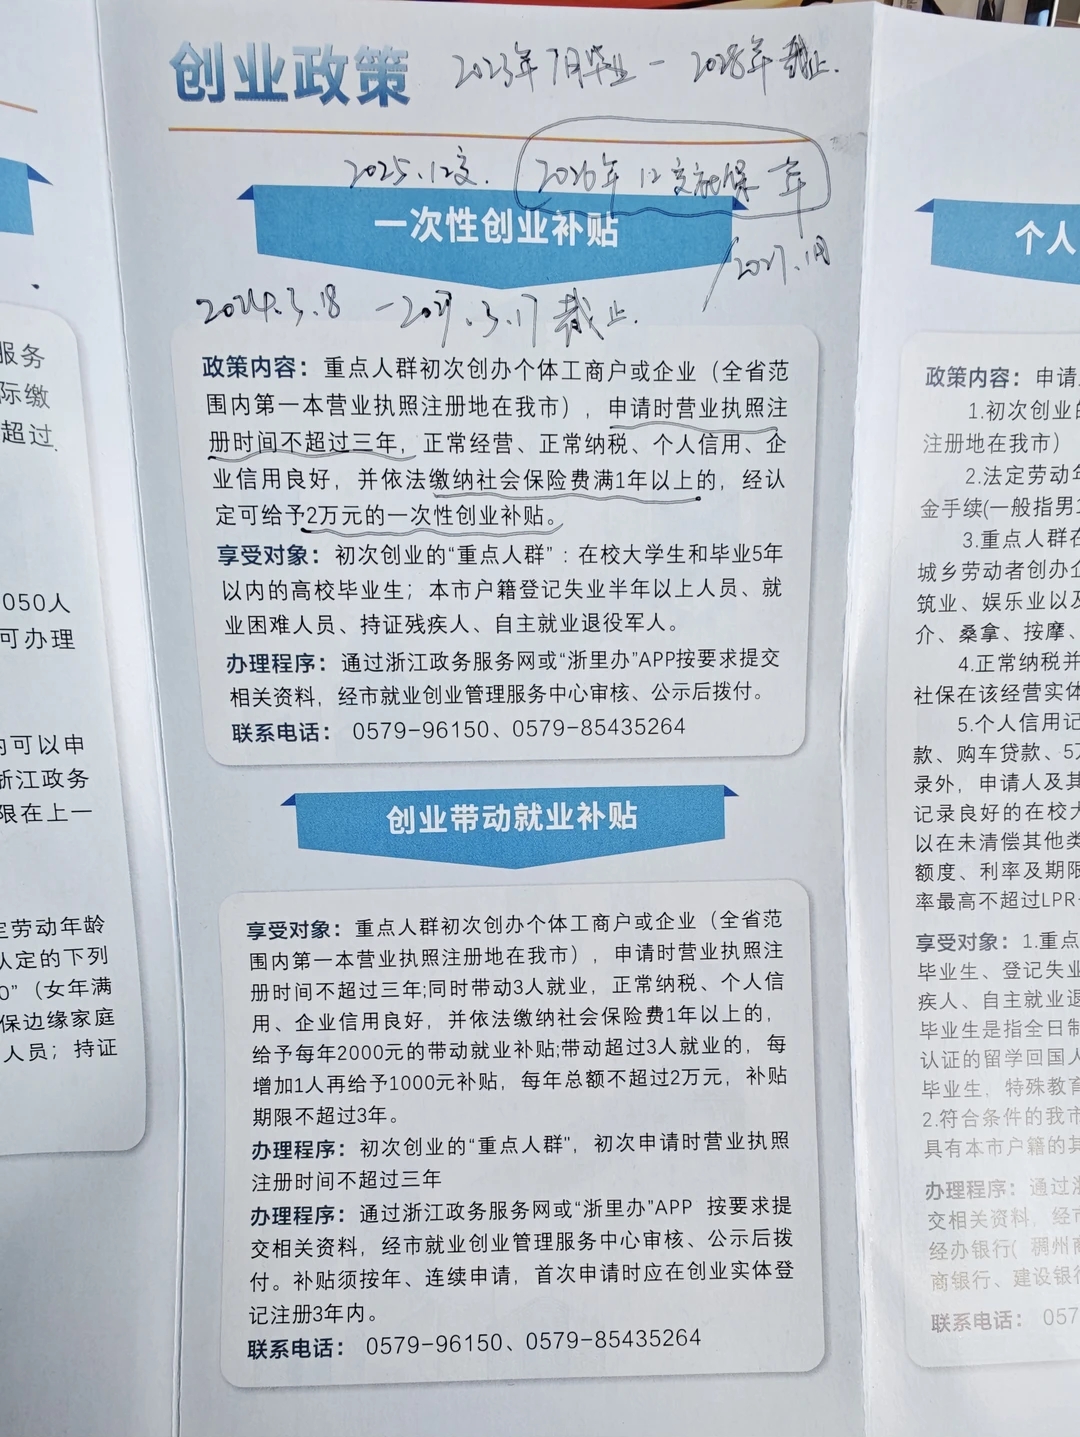 创业政策
2023年7月毕业 — 2028年截止.
2025.12交.
2026年12交社保一年
一次性创业补贴
/2027.1月
2024.3.18 — 2027.3.17 截止.
政策内容：重点人群初次创办个体工商户或企业（全省范
围内第一本营业执照注册地在我市），申请时营业执照注
册时间不超过三年，正常经营、正常纳税、个人信用、企
业信用良好，并依法缴纳社会保险费满1年以上的，经认
定可给予2万元的一次性创业补贴。
享受对象：初次创业的“重点人群”：在校大学生和毕业5年
以内的高校毕业生；本市户籍登记失业半年以上人员、就
业困难人员、持证残疾人、自主就业退役军人。
办理程序：通过浙江政务服务网或“浙里办”APP按要求提交
相关资料，经市就业创业管理服务中心审核、公示后拨付。
联系电话： 0579-96150、0579-85435264
创业带动就业补贴
享受对象：重点人群初次创办个体工商户或企业（全省范
围内第一本营业执照注册地在我市），申请时营业执照注
册时间不超过三年;同时带动3人就业，正常纳税、个人信
用、企业信用良好，并依法缴纳社会保险费1年以上的，
给予每年2000元的带动就业补贴;带动超过3人就业的，每
增加1人再给予1000元补贴，每年总额不超过2万元，补贴
期限不超过3年。
办理程序：初次创业的“重点人群”，初次申请时营业执照
注册时间不超过三年
办理程序：通过浙江政务服务网或“浙里办”APP 按要求提
交相关资料，经市就业创业管理服务中心审核、公示后拨
付。补贴须按年、连续申请，首次申请时应在创业实体登
记注册3年内。
联系电话： 0579-96150、0579-85435264
服务
际缴
超过.
050人
可办理
内可以申
浙江政务
限在上一
定劳动年龄
认定的下列
0”（女年满
保边缘家庭
人员；持证
个人
政策内容：申请
1.初次创业的
注册地在我市）
2.法定劳动年
金手续(一般指男
3.重点人群在
城乡劳动者创办企
筑业、娱乐业以及
介、桑拿、按摩、
4.正常纳税并
社保在该经营实体
5.个人信用记
款、购车贷款、5万
录外，申请人及其
记录良好的在校大
以在未清偿其他类
额度、利率及期限
率最高不超过LPR
享受对象：1.重点
毕业生、登记失业
疾人、自主就业退
毕业生是指全日制
认证的留学回国人
毕业生，特殊教育
2.符合条件的我市
具有本市户籍的其
办理程序：通过浙
交相关资料，经市
经办银行( 稠州商
商银行、建设银行
联系电话： 057